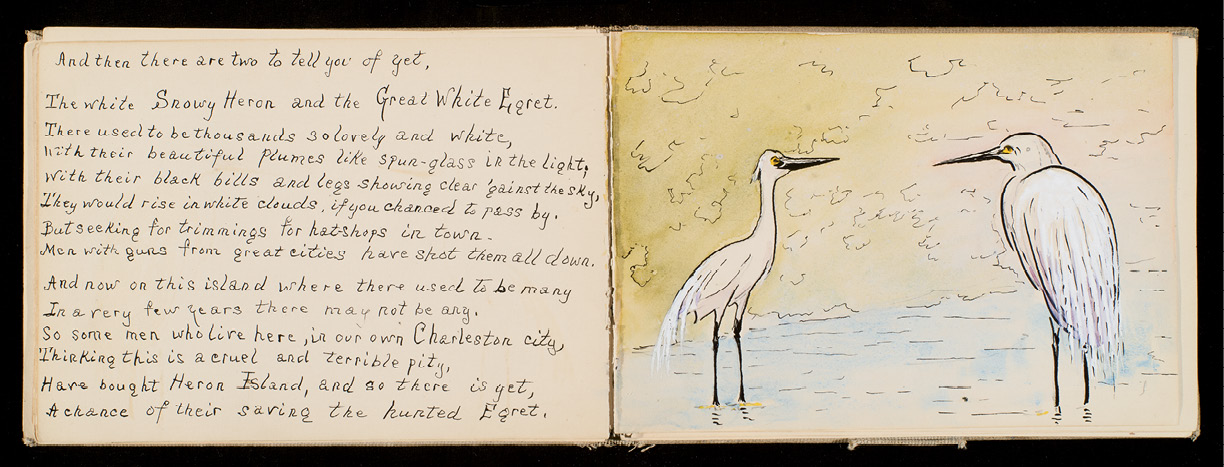 And then there are two to tell you of yet,
The white Snowy Heron and the Great White Egret.
There used to be thousands so lovely and white,
With their beautiful plumes like spun-glass in the light,
With their black bills and legs showing clear 'gainst the sky,
They would rise in white clouds, if you chanced to pass by.
But seeking for trimmings for hat-shops in town-
Men with guns from great cities have shot them all down.
And now on this island where there used to be many
In a very few years there may not be any.
So some men who live here, in our own Charleston city,
Thinking this is a cruel and terrible pity,
Have bought Heron Island, and so there is yet,
A chance of their saving the hunted Egret.